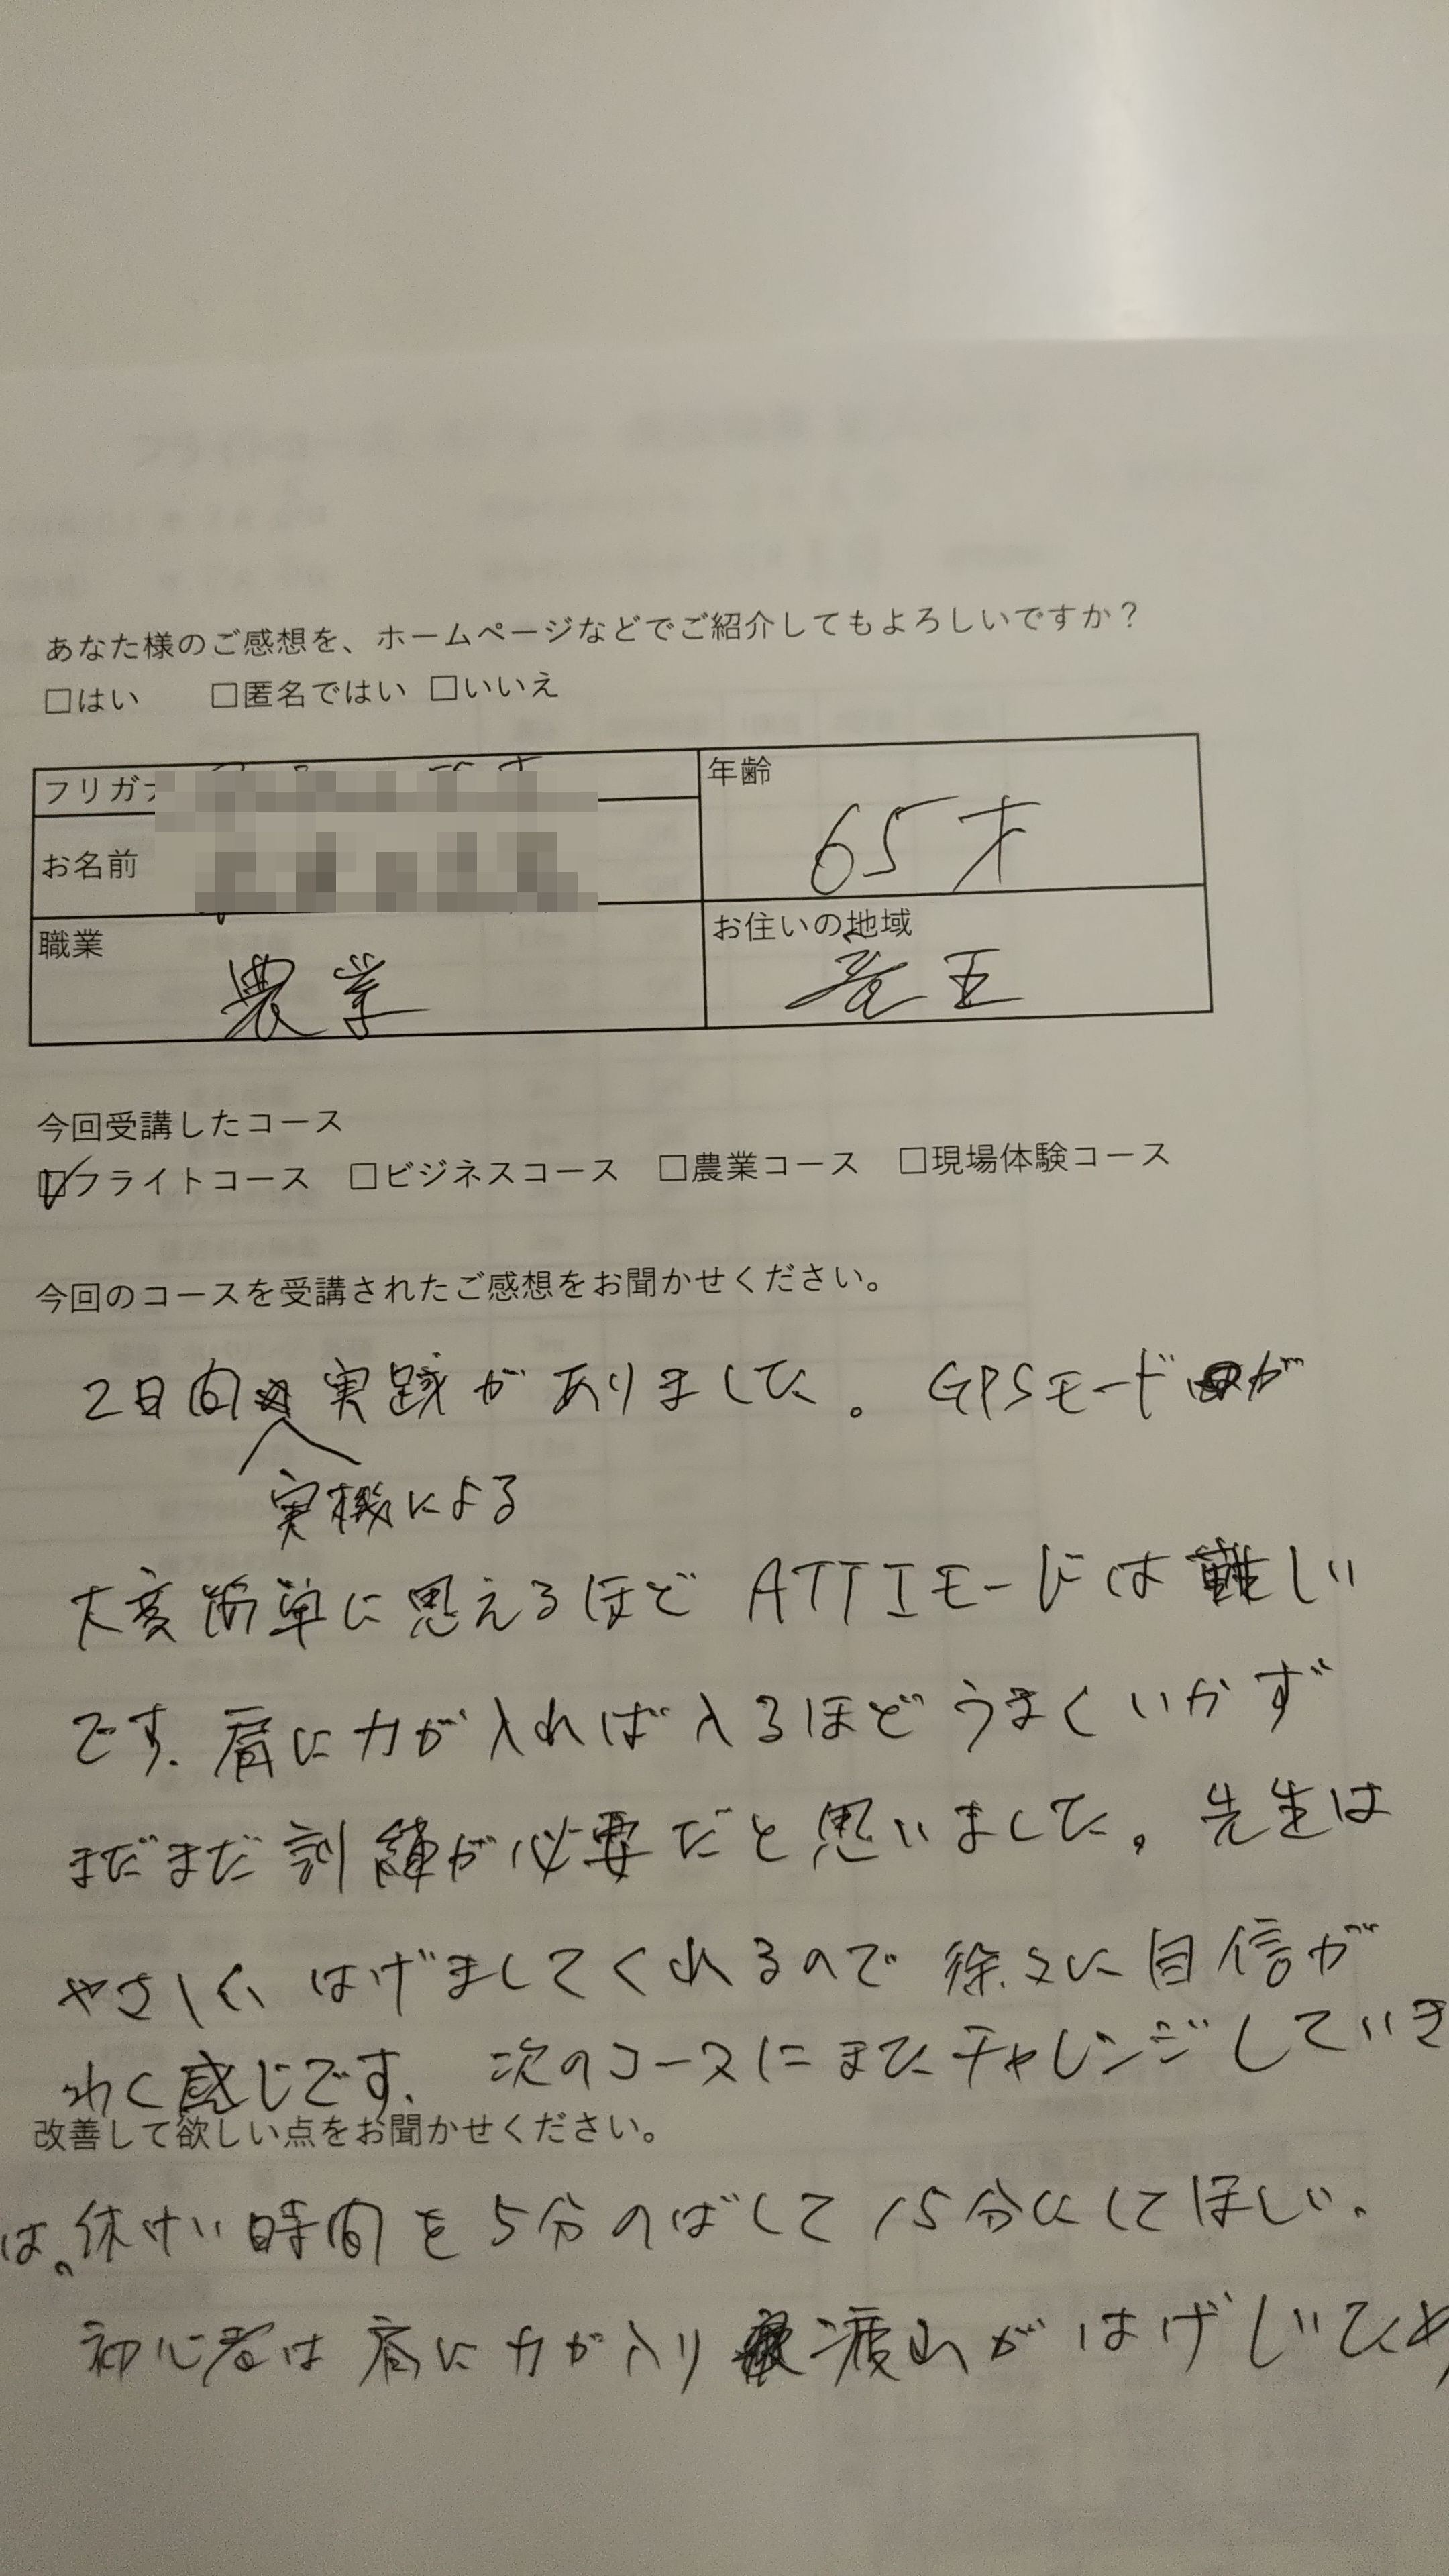 あなた様のご感想を、ホームページなどでご紹介してもよろしいですか？
□はい □匿名ではい □いいえ
フリガナ
年齢
65才
お名前
職業
農業
お住いの地域
竜王
今回受講したコース
☑フライトコース □ビジネスコース □農業コース □現場体験コース
今回のコースを受講されたご感想をお聞かせください。
2日間 実践がありました。GPSモードが
実機による
大変簡単に思えるほど ATTIモードは難しい
です。肩に力が入れば入るほどうまくいかず
まだまだ訓練が必要だと思いました。先生は
やさしく はげましてくれるので 徐々に自信が
わく感じです。次のコースにまたチャレンジしていき
改善して欲しい点をお聞かせください。
は。休けい時間を5分のばして15分にしてほしい。
初心者は肩に力が入り 疲れがはげしいため